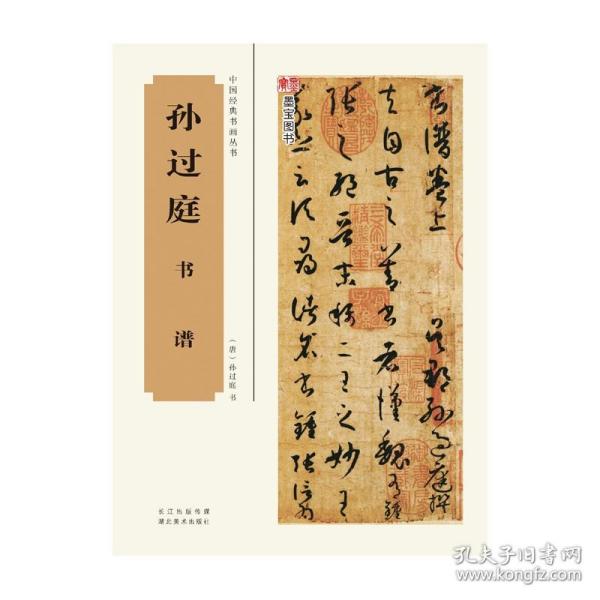 孙过庭
书谱
中国经典书画丛书
（唐）孙过庭 书
长江出版传媒
湖北美术出版社
墨宝图书
书谱卷上 吴郡孙过庭撰
夫自古之善书者汉魏有钟
张之绝晋末称二王之妙王
羲之云顷寻诸名书钟张信为
孔夫子旧书网
www.kongfz.com